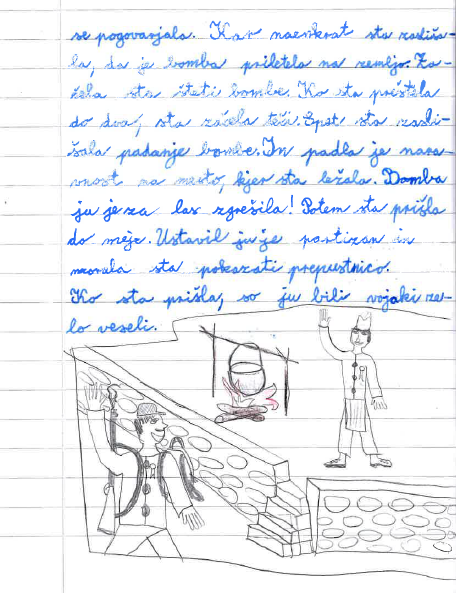 se pogovarjala. Kar naenkrat sta zasliša-
la, da je bomba priletela na zemljo. Za-
čela sta šteti bombe. Ko sta preštela
do dva, sta začela teči. Spet sta zasli-
šala padanje bombe. In padla je nara-
vnost na mesto, kjer sta ležala. Bomba
ju je za las zgrešila! Potem sta prišla
do meje. Ustavil ju je partizan in
morala sta pokazati prepustnico.
Ko sta prišla, so ju bili vojaki ze-
lo veseli.